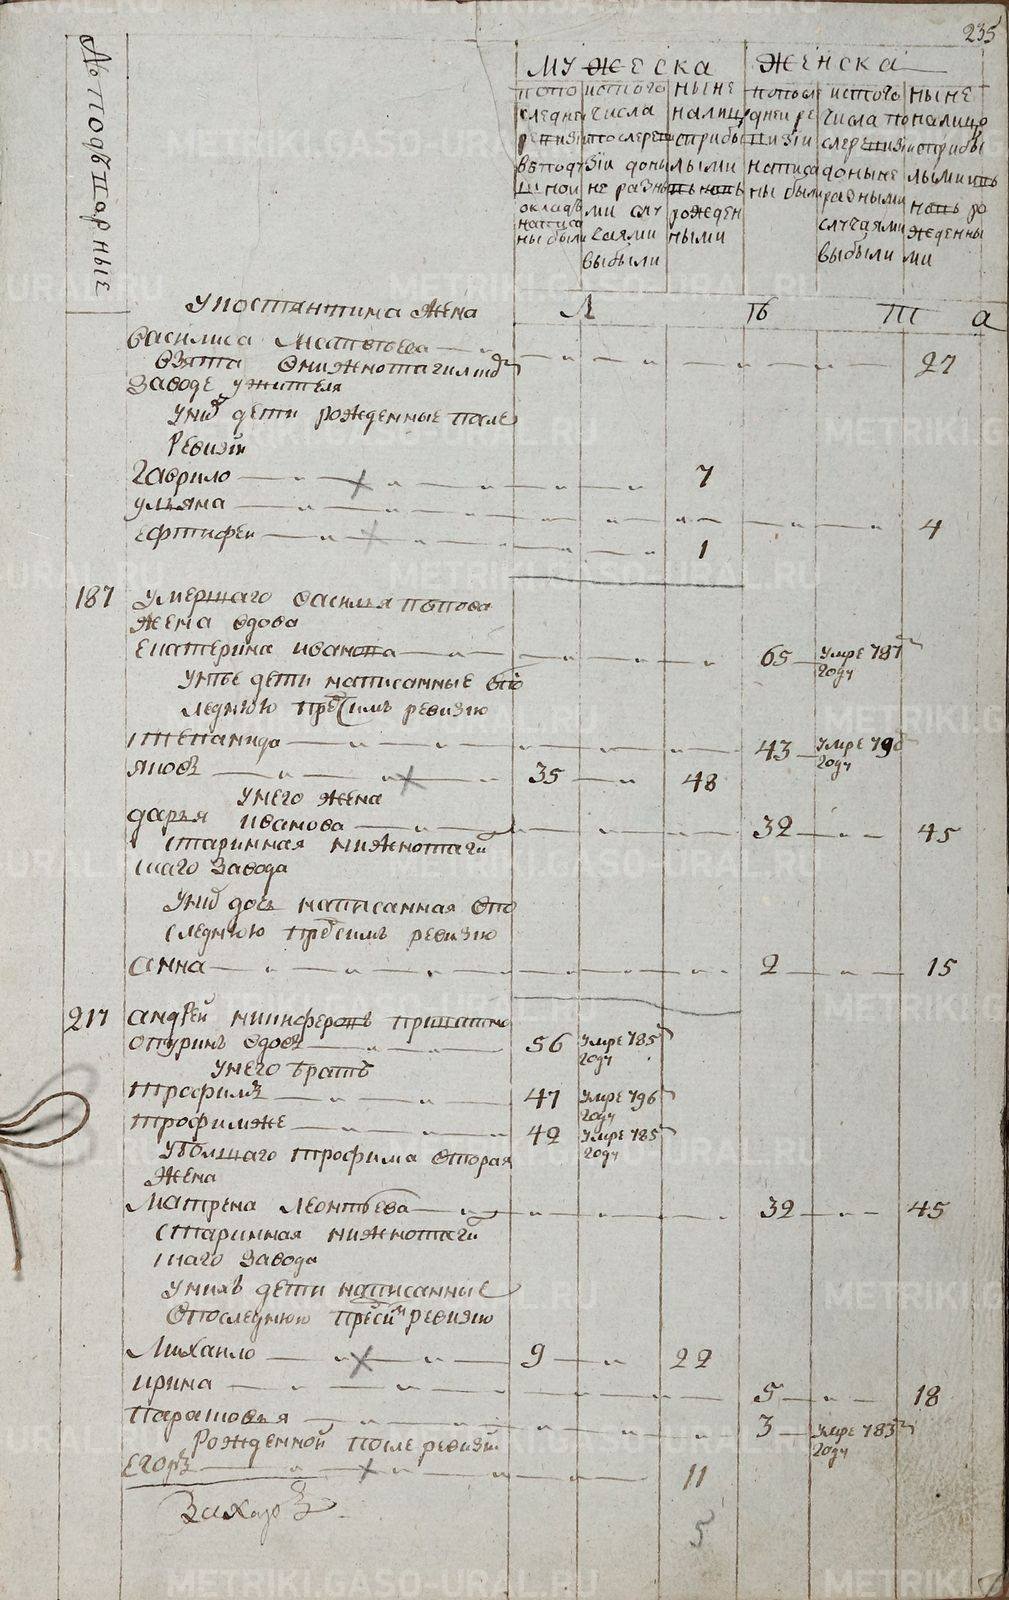 235
№ подушные
Мужеска
Женска
попо
следне
ревизи
в поду
шном
окладе
написа
ны были
ис того
числа
после реви
зии доны
не разны
ми слу
чаями
выбыли
ныне
налицо
с прибы
лыми
рожден
ными
по после
дней ре
визии
написа
ны были
ис того
числа по
сле ревизи
доныне
разными
случаями
выбыли
ныне
налицо
с прибы
лыми
рожденны
ми
Л
ѣ
т
а
У костантина жена
василиса
взята внижнотагилск
заводе ужителя
уних дети рожденные после
ревизи
гаврило 7
ульяна 4
ефтифеи 1
187 умершаго василья попова
жена вдова
екатерина иванова 65 умре 787 году
унее дети написанные впо
леднюю пред сим ревизию
степанида 43 умре 79 году
яков 35 48
унего жена
дарья иванова 32 45
старинная нижнотаги
лскаго завода
уних дочь написанная впо
следнюю пред сим ревизию
анна 2 15
217 андреи никифоровъ
вдовъ 56 умре 785 году
унего братъ
трофимъ 47 умре 796 году
трофимже 42 умре 785 году
уболшаго трофима вторая
жена
матрена леонтьева 32 45
старинная нижнотаги
лскаго завода
уних дети написанные
впоследнюю пред сим ревизию
михаило 9 22
ирина 5 18
парасковья 3 умре 783 году
рожденной после ревизи
егоръ 11
Захаръ 5
METRIKI.GASO-URAL.RU